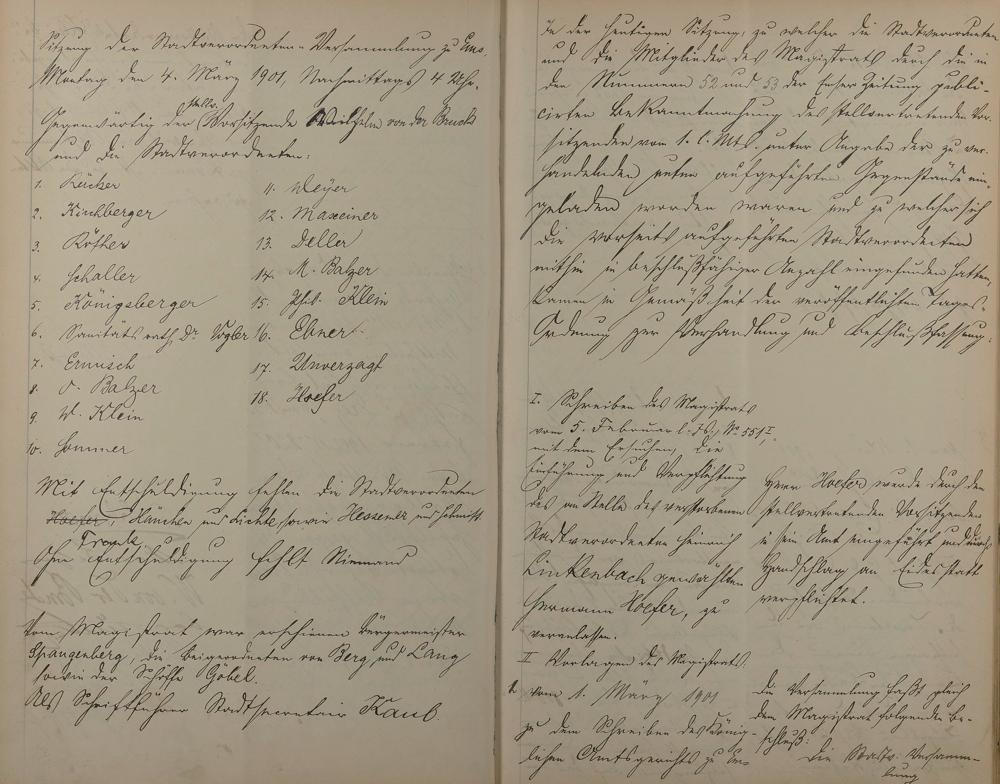 Sitzung der Stadtverordneten-Versammlung zu Ems.
Montag den 4. März 1901, Nachmittags 4 Uhr.
Gegenwärtig der stellv. Vorsitzende Wilhelm von der Bruck
und die Stadtverordneten:
1. Rücker
2. Kirchberger
3. Röther
4. Schaller
5. Königsberger
6. Sanitätsrath Dr. Vogler
7. Ermisch
8. O. Balzer
9. W. Klein
10. Sommer
11. Weyer
12. Maxeiner
13. Deller
14. M. Balzer
15. Klein
16. Ebner
17. Unverzagt
18. Hoefer
Mit Entschuldigung fehlen die Stadtverordneten
Hoefer, Hänchen und Lichte, sowie Hessemer und Schmitt
Franke
Ohne Entschuldigung fehlt Niemand
Vom Magistrat war erschienen Bürgermeister
Spangenberg, die Beigeordneten von Berg und Lang
sowie der Schöffe Göbel.
Als Schriftführer Stadtsecretair Kaul.
In der heutigen Sitzung, zu welcher die Stadtverordneten
und die Mitglieder des Magistrats durch die in
den Nummern 52 und 53 der Emser Zeitung publi-
cirten Bekanntmachung des stellvertretenden Vor-
sitzenden vom 1. l. Mts. unter Angabe der zu ver-
handelnden unten aufgeführten Gegenstände ein-
geladen worden waren und zu welcher sich
die vorseits aufgeführten Stadtverordneten
mithin in beschlußfähiger Anzahl eingefunden hatten,
kamen in Gemäßheit der veröffentlichten Tages-
Ordnung zur Verhandlung und Beschlußfassung:
I. Schreiben des Magistrats
vom 5. Februar l. Js., No 551 I,
mit dem Ersuchen, die
Einführung und Verpflichtung
des an Stelle des verstorbenen
Stadtverordneten Heinrich
Linkenbach gewählten
Hermann Hoefer, zu
veranlassen.
Herr Hoefer wurde durch den
stellvertretenden Vorsitzenden
in sein Amt eingeführt und durch
Handschlag an Eidesstatt
verpflichtet.
II Vorlagen des Magistrats.
1. vom 1. März 1901
zu dem Schreiben des König-
lichen Amtsgerichts zu Em-
Die Versammlung faßt gleich
dem Magistrat folgenden Be-
schluß:
Die Stadtv. Versamm-
lung